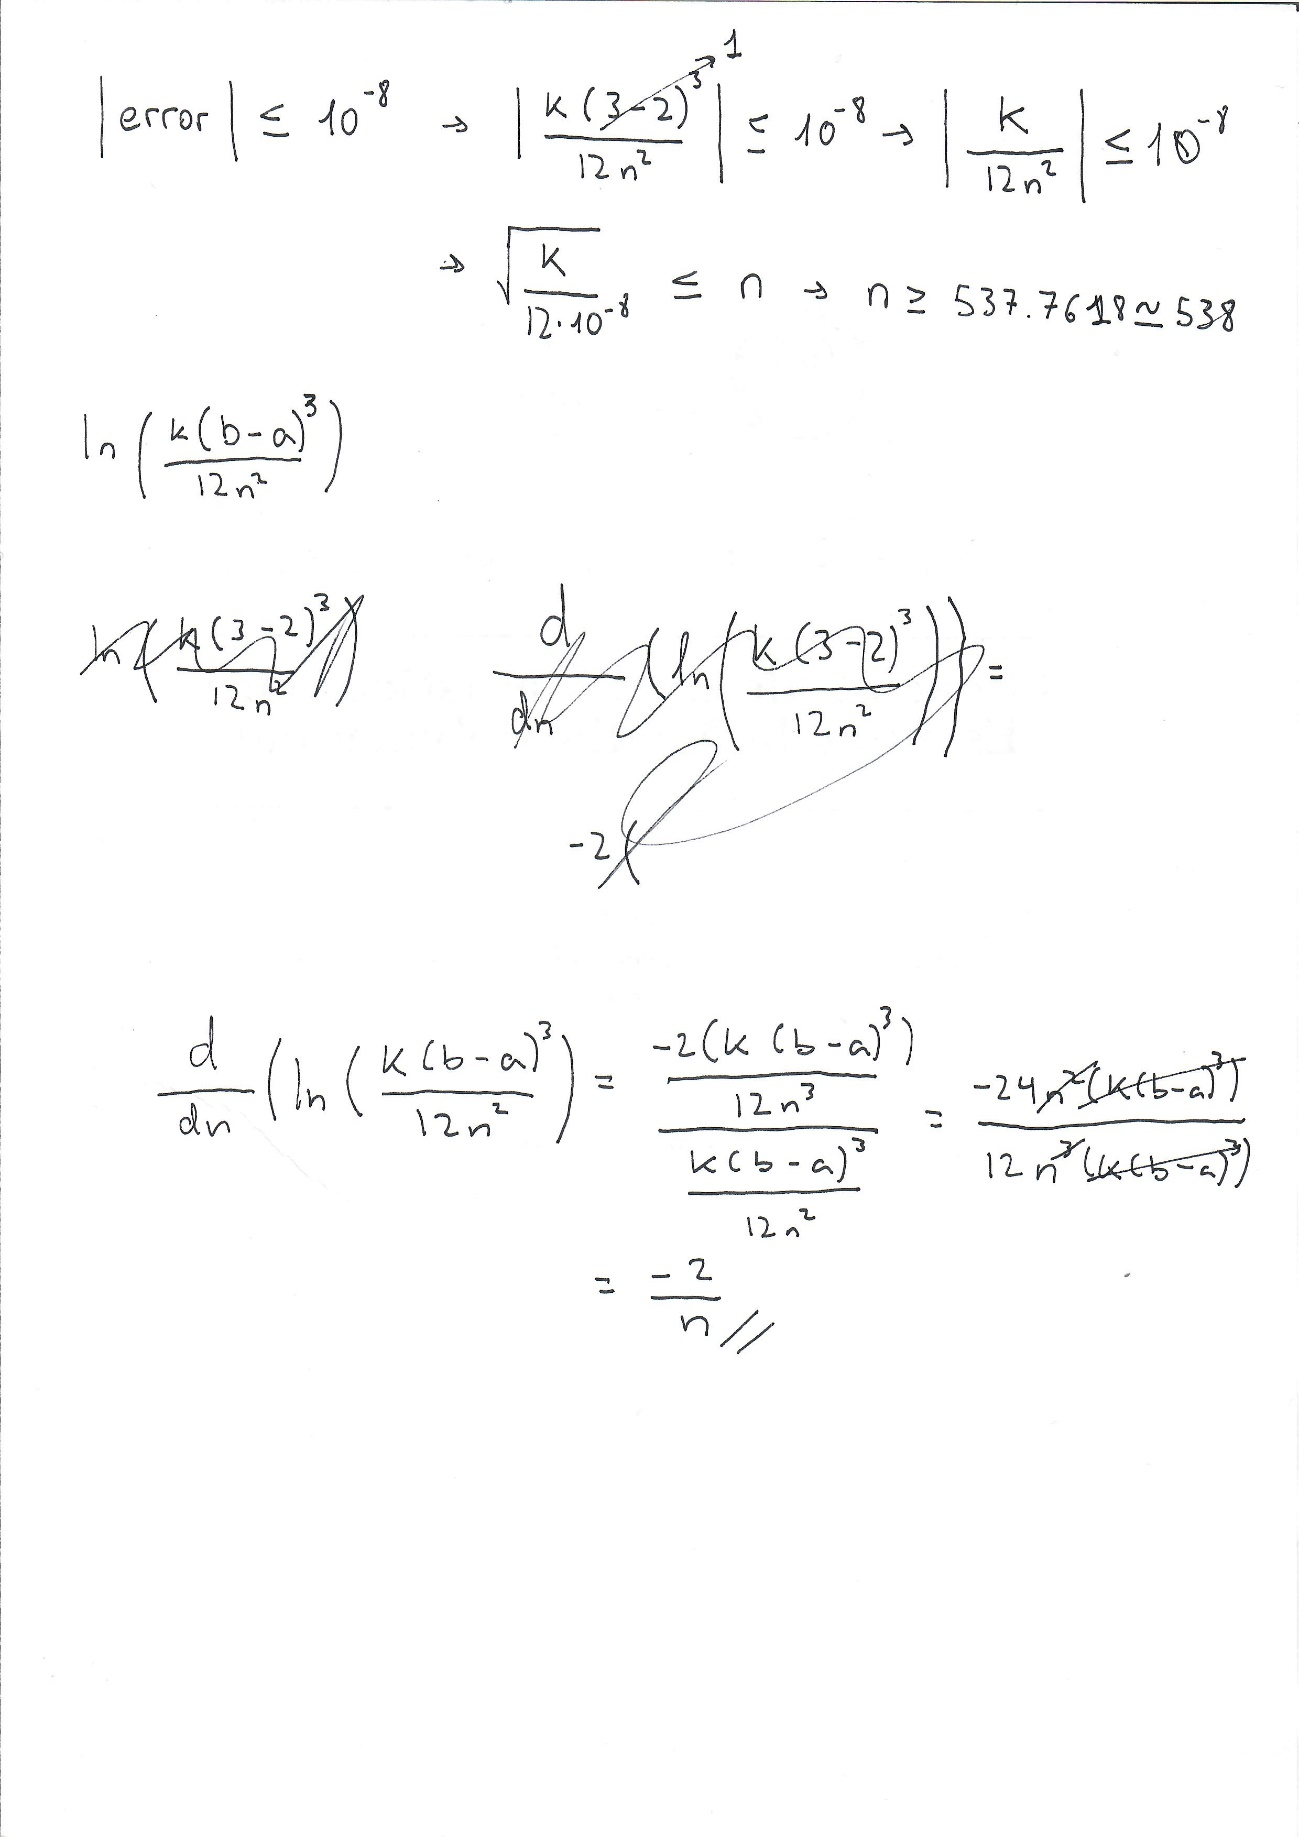 |error| ≤ 10^-8 → |k(3-2)^3 / 12n^2| ≤ 10^-8 → |k / 12n^2| ≤ 10^-8
1
→ √(k / 12·10^-8) ≤ n → n ≥ 537.7618 ≃ 538
ln(k(b-a)^3 / 12n^2)
ln(k(3-2)^3 / 12n^2) d/dn (ln(k(3-2)^3 / 12n^2)) =
-2(
d/dn (ln(k(b-a)^3 / 12n^2) = (-2(k(b-a)^3) / 12n^3) / (k(b-a)^3 / 12n^2) = -24n^2(k(b-a)^3) / 12n^3(k(b-a)^3)
= -2/n //